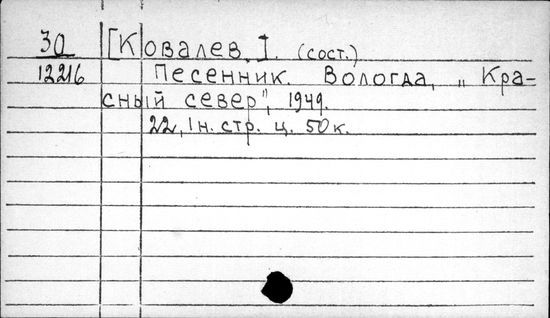 30 [Ковалев, I. (сост.)
12216 Песенник. Вологда, „Кра-
сный север", 1949.
22, 1н. стр. ц. 50к.